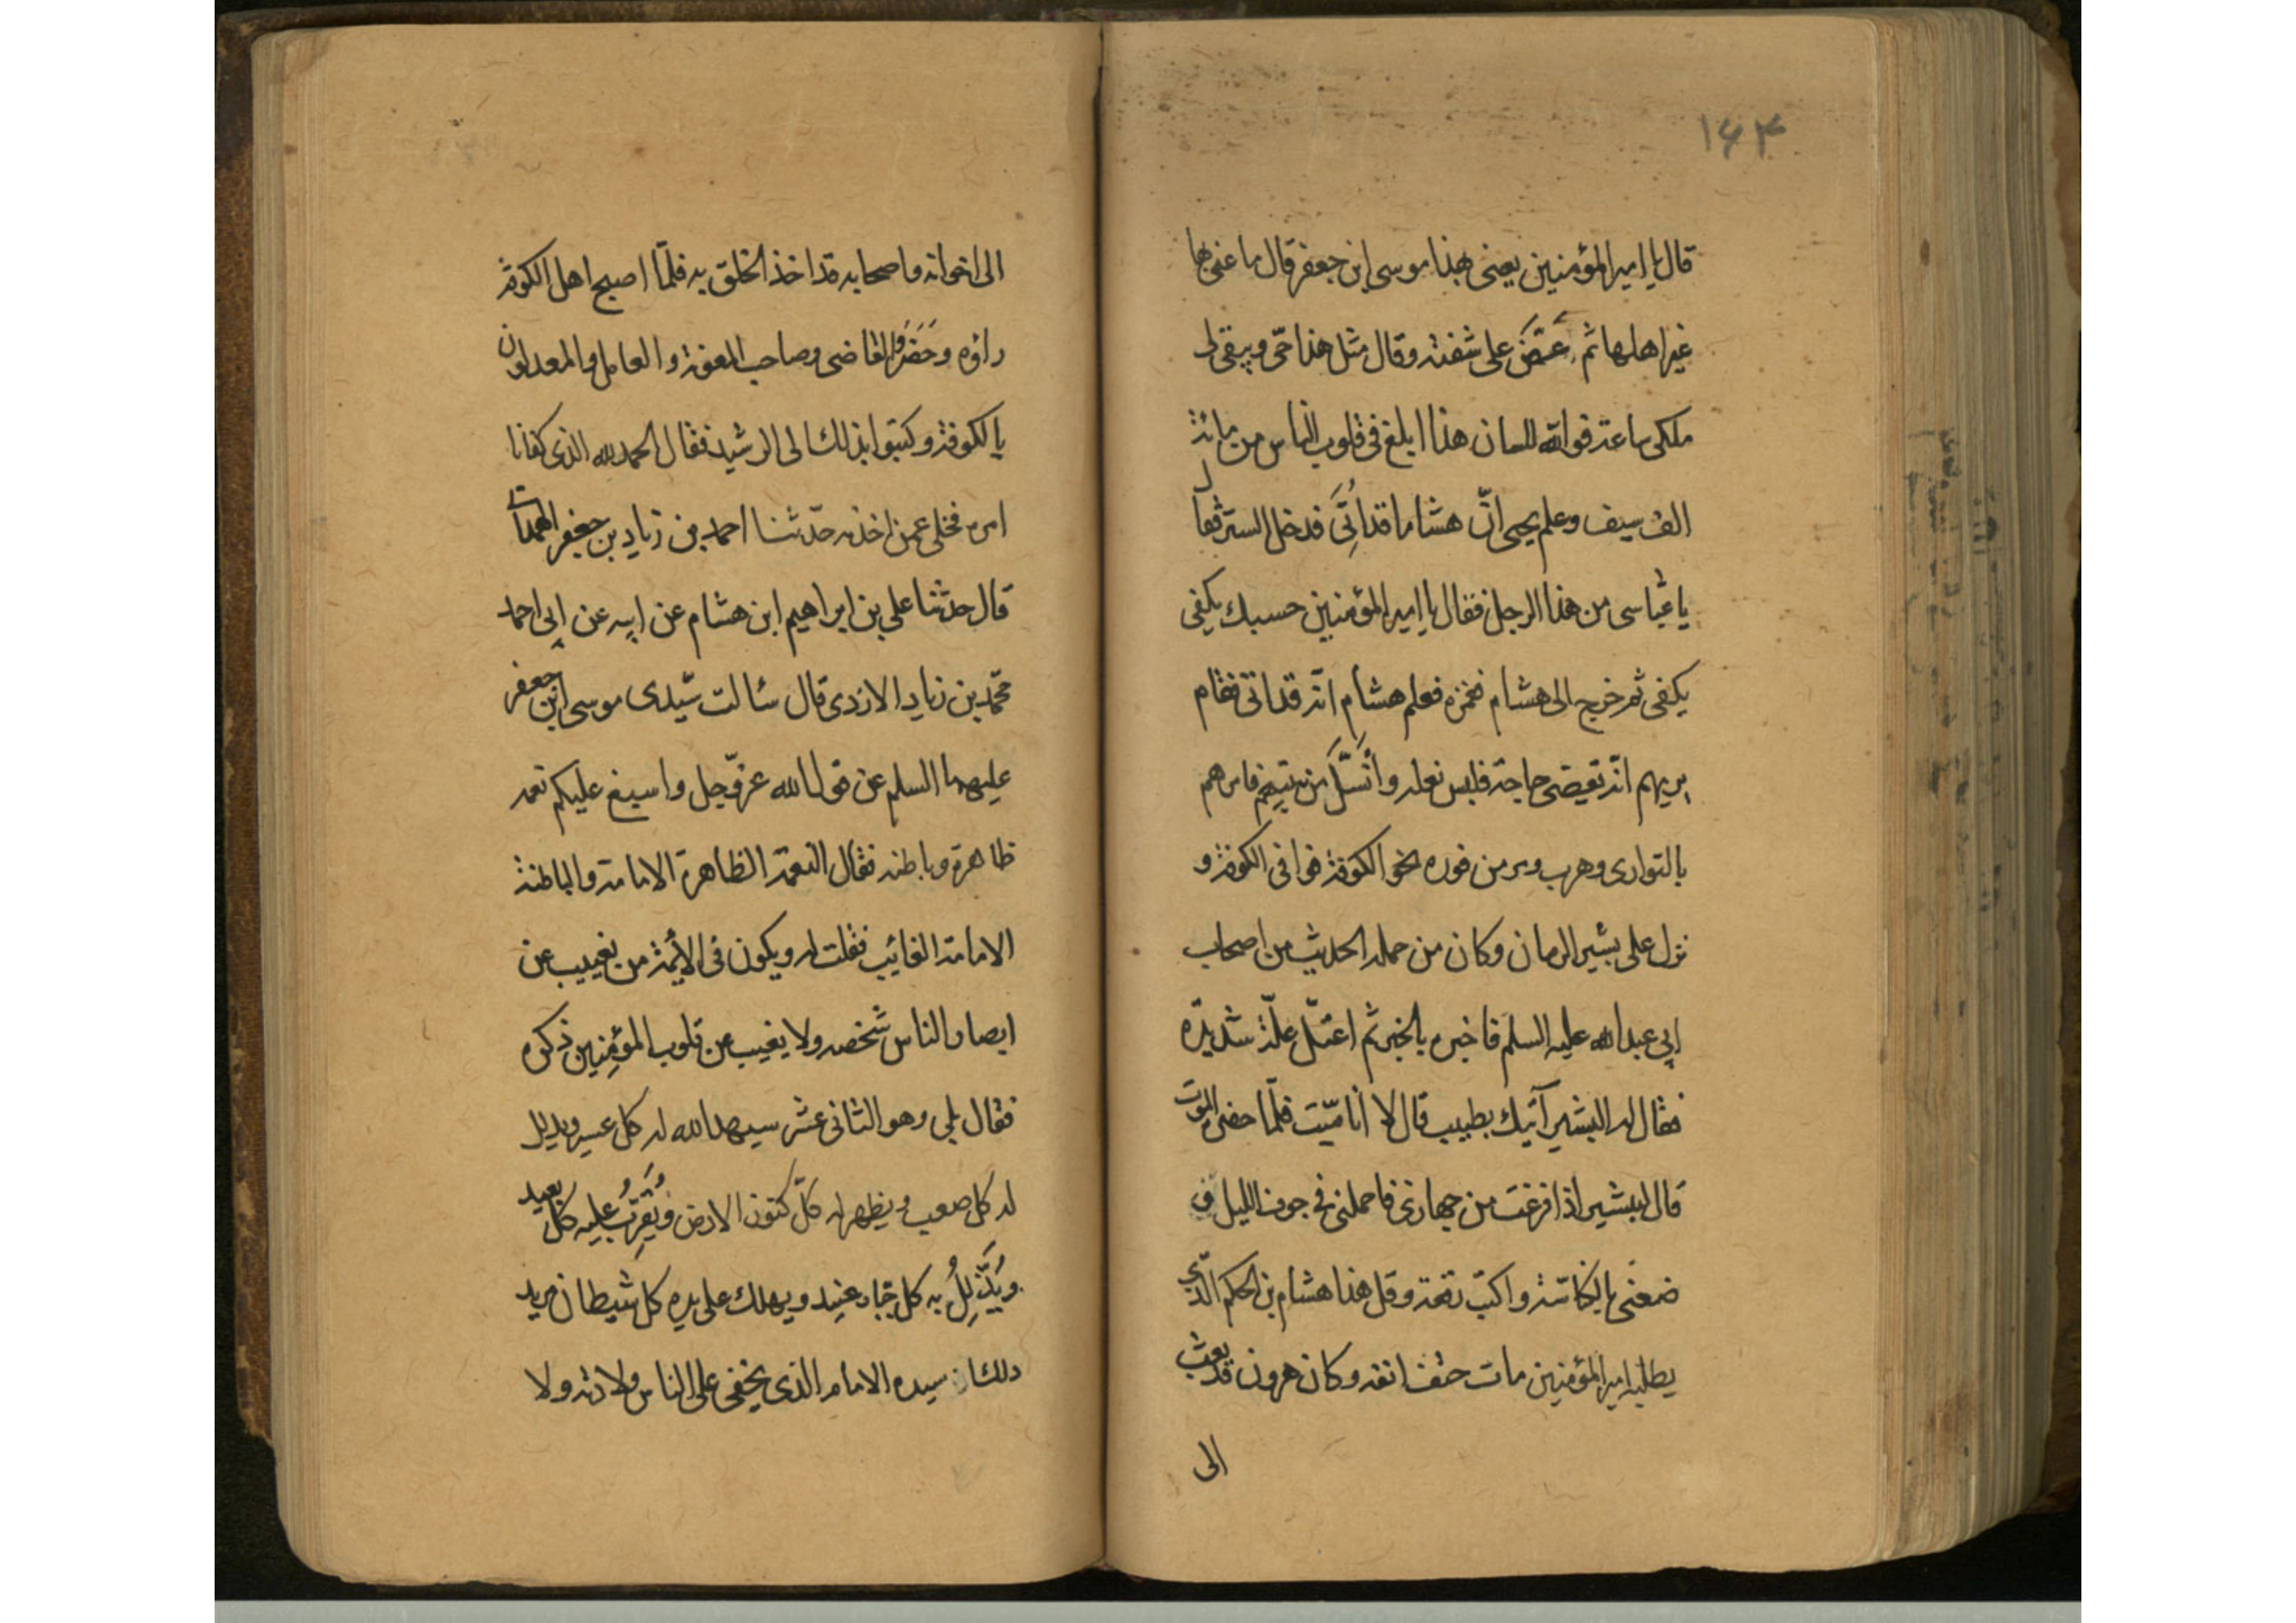 ۱۶۳
قال يا امير المؤمنين يعنى بهذا موسى ابن جعفر قال ما عنى بها
غير اهلها ثم عضّ على شفته وقال مثل هذا حى ويبقى لى
ملكى ساعة فو الله للسان هذا ابلغ فى قلوب الناس من مائة
الف سيف وعلم يحيى انّ هشاما قد اُتِىَ فدخل الستر فقال
يا عباسى من هذا الرجل فقال يا امير المؤمنين حسبك يكفى
يكفى ثم خرج الى هشام فغمزه فعلم هشام انّه قد اتى فقام
يريهم انّه يقضى حاجة فلبس نعله وانسَلَّ من بيتهم فامرهم
بالتوارى وهرب ومر من فوره نحو الكوفة فوافى الكوفة و
نزل على بشير الرمان وكان من حملة الحديث من اصحاب
ابى عبد الله عليه السلم فاخبره بالخبر ثم اعتلّ علّة شديدة
فقال له البشير آتيك بطبيب قال لا انا ميّت فلمّا حضر الموت
قال لبشير اذا فرغت من جهازى فاحملنى فى جوف الليل و
ضعنى بالكناسة واكتب رقعة وقل هذا هشام بن الحكم الذّى
يطلبه امير المؤمنين مات حتف انفه وكان هرون قد بعث
الى
الى اخوانه واصحابه قد اخذ الخلق به فلمّا اصبح اهل الكوفة
راؤه وحَضَرَوا القاضى وصاحب المعونة والعامل والمعدلون
بالكوفة وكتبوا بذلك الى الرشيد فقال الحمد لله الذى كفانا
امره فخلى عمن اخذه حدّثنا احمد بن زياد بن جعفر الهمدانى
قال حدثنا على بن ابراهيم ابن هشام عن ابيه عن ابى احمد
محمّد بن زياد الازدى قال سئالت سيّدى موسى ابن جعفر
عليهما السلم عن قول الله عزّ وجل واسبغ عليكم نعمه
ظاهرة وباطنه فقال النعمة الظاهرة الامامة والباطنة
الامامة الغائب فقلت له ويكون فى الأئمة من يغيب عن
ابصار الناس شخصه ولا يغيب عن قلوب المؤمنين ذكره
فقال بلى وهو الثانى عشر سيهل الله له كل عسير ويذلل
له كل صعب ويظهر له كلّ كنوز الارض ويُقَرِّبُ عليه كل بعيد
ويُذَلِّلُ به كل جبّار عنيد ويهلك على يده كل شيطان مريد
ذلك ان سيده الامام الذى يخفى على الناس ولادته ولا